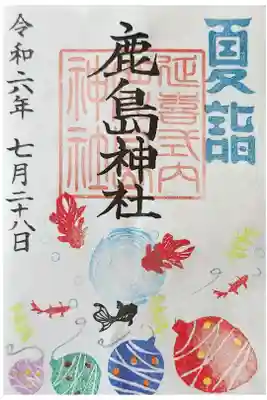 夏詣
延喜式内
鹿島神社
神社
令和六年 七月二十八日